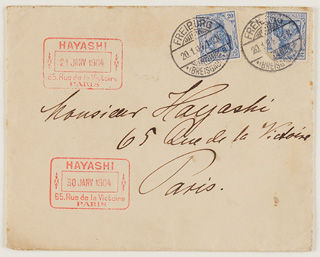 HAYASHI
21 JANV 1904
65, Rue de la Victoire
PARIS
FREIBURG
20.1.04
(BREISGAU)
20
FREIBURG
20.1.04
(BREISGAU)
Monsieur Hayashi
65 Rue de la Victoire
Paris.
HAYASHI
30 JANV 1904
65, Rue de la Victoire
PARIS